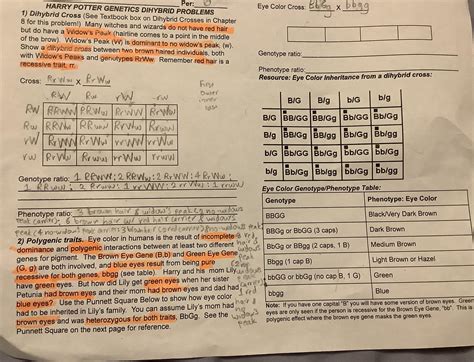 Per:
HARRY POTTER GENETICS DIHYBRID PROBLEMS
1) Dihybrid Cross (See Textbox book on Dihybrid Crosses in Chapter
8 for this problem!) Many witches and wizards do not have red hair
but do have a Widow's Peak (hairline comes to a point in the middle
of the brow). Widow's Peak (W) is dominant to no widow's peak, (w).
Show a dihybrid cross between two brown haired individuals, both
with Widow's Peaks and genotypes RrWw. Remember red hair is a
recessive trait, rr.
Cross: RrWw x RrWw
First
outer
inner
last
RW Rw rW rw
RW RRWW RRWw RrWW RrWw
Rw RRWw RRww RrWw Rrww
rW RrWW RrWw rrWW rrWw
rw RrWw Rrww rrWw rrww
Genotype ratio: 1 RRWW: 2 RRWw: 2 RrWW: 4 RrWw:
1 RRww: 2 Rrww: 1 rrWW: 2 rrWw: 1 rrww
Phenotype ratio: 3 brown hair & widows peak
2) Polygenic traits. Eye color in humans is the result of incomplete
dominance and polygenic interactions between at least two different
genes for pigment. The Brown Eye Gene (B,b) and Green Eye Gene
(G, g) are both involved, and blue eyes result from being pure
recessive for both genes, bbgg (see table). Harry and his mom Lily
have green eyes. But how did Lily get green eyes when her sister
Petunia had brown eyes and mom had brown eyes and dad had
blue eyes? Use the Punnett Square Below to show how eye color
had to be inherited in Lily's family. You can assume Lily's mom had
brown eyes and was heterozygous for both traits, BbGg. See the
Punnett Square on the next page for reference.
Eye Color Cross: BbGg x bbgg
Genotype ratio:
Phenotype ratio:
Resource: Eye Color Inheritance from a dihybrid cross:
B/G B/g b/G b/g
B/G BB/GG BB/Gg Bb/GG Bb/Gg
B/g BB/Gg BB/gg Bb/Gg Bb/gg
b/G Bb/GG Bb/Gg bb/GG bb/Gg
b/g Bb/Gg Bb/gg bb/Gg bb/gg
Eye Color Genotype/Phenotype Table:
Genotype Phenotype: Eye Color
BBGG Black/Very Dark Brown
BBGg or BbGG (3 caps) Dark Brown
BbGg or BBgg (2 caps, 1 B) Medium Brown
Bbgg (1 cap B) Light Brown or Hazel
bbGG or bbGg (no cap B, 1 G) Green
bbgg Blue
Note: If you have one capital "B" you will have some version of brown eyes. Green
eyes are only seen if the person is recessive for the Brown Eye Gene, "bb". This is
polygenic effect where the brown eye gene masks the green eyes.